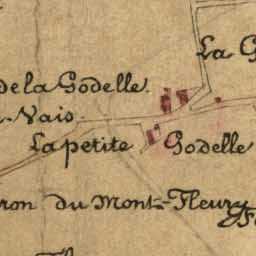 La G
de la Godelle.
-Vais
La petite Godelle
ron du Mont-Fleury